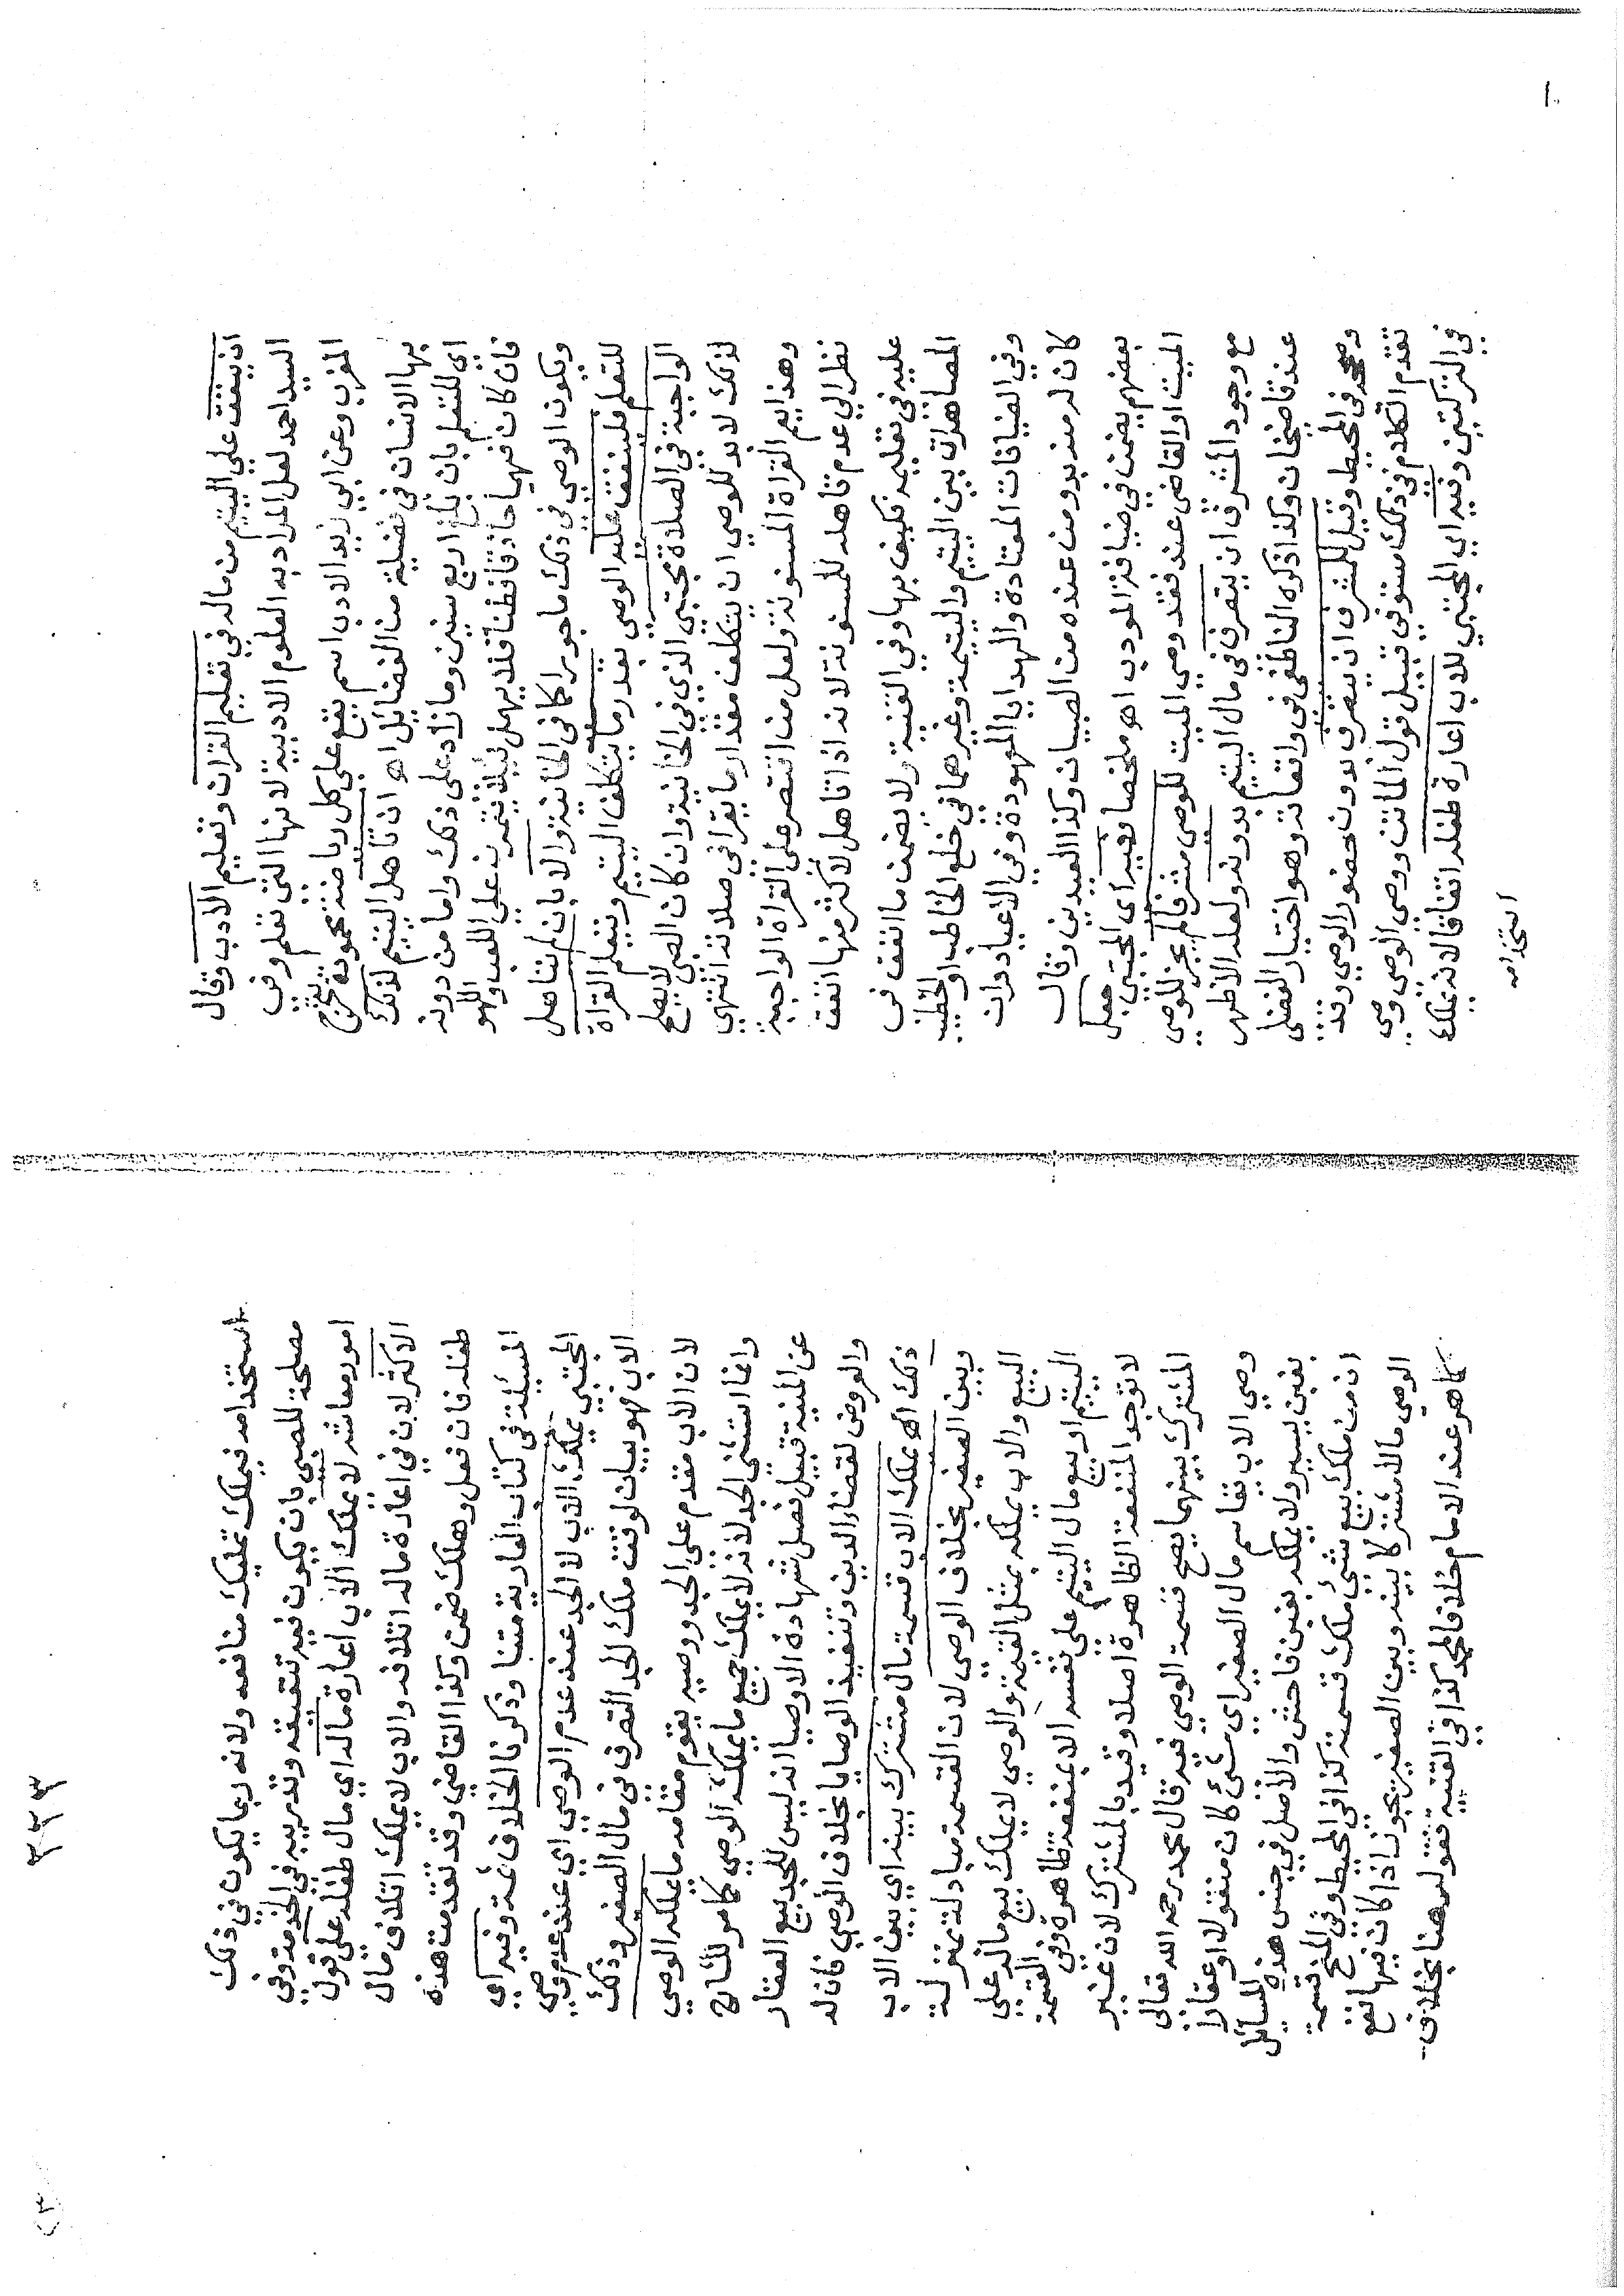 ان ينفق علي اليتيم من ماله في تعليم القران وتعليم الادب وقال
السيد احمد لعل المراد به العلوم الادبية لانها التي تعلم وفي
المغرب وعن ابي زيد الادب اسم يقع علي كل رياضة محمودة يتخرج
بها الانسان في فضيلة من الفضايل اه ان تاهل اليتيم لذلك
اي للتعلم بان بلغ اربع سنين وما زاد على ذلك واما من دونه
فان كان فهيما حاذقا فطنا فلا يهمل ليلا يتمرن علي اللعب واللهو
ويكون الوصي في ذلك ماجورا كما في الخانية والا بان لم يتاهل
للتعلم فلينفق عليه الوصي بقدر ما يتكلف اليتيم ويتعلم القراة
الواجبة في الصلاة مجتبي الذي في الخانية وان كان الصبي لا يصلح
لذلك لا بد للوصي ان يتكلف مقدار ما يقرا في صلاته انتهي
وهذا يعم القراة المسنونة ولعل من اقتصر على القراة الواجبة
نظر الي عدم تاهله للمسنونة لانه اذا تاهل لأكثر منها انفق
عليه في تعليمه فكيف بها وفي القنية ولا يضمن ما انفق في
المصاهرات بين اليتيم واليتيمة وغيرهما في خلع الخاطب او الخطيبة
وفي الضيافات المعتادة والهدايا المعهودة وفي الاعياد وان
كان له منه بد ومن عنده من الصبيان وكذا العيدين وقال
بعضهم يضمن في ضيافة المودب اه ملخصا وفيه اي المجتبي جعل
الميت او القاضي عند فقد وصي الميت للوصي مشرفا لم يجز للوصي
مع وجود المشرف ان يتصرف في مال اليتيم بدونه ولعله الاظهر
عند قاضيخان وكذا ذكره الناطفي في واقعاته وهو اختيار الفضلي
وصححه في المحيط وقيل للمشرف ان يتصرف بدون حضور الوصي وقد
تقدم الكلام في ذلك مستوفي قبيل قول الماتن ووصي الوصي وصي
في التركتين وفيه اي المجتبي للاب اعارة طفله اتفاقا لانه يملك
استخدامه
٣٣٣
استخدامه فيملك تمليك منافعه ولانه ربما يكون في ذلك
مصلحة للصبي بان يكون فيه تثقيفه وتدريبه في الخدمة وفي
امور معاشه لا يملك الاب اعارة ماله اي مال طفله علي قول
الاكثر لابن في اعارة ماله اتلافه والاب لا يملك اتلاف مال
طفله فان فعل وهلك ضمن وكذا القاضي وقد تقدمت هذه
المسئلة في كتاب العارية متنا وذكرنا الخلاف ثمة وفيه اي
المجتبي يملك الاب لا الجد عند عدم الوصي اي عند عدم وصي
الاب فهو بيان لوقت ملك الجد التصرف في مال الصغير وذلك
لان الاب مقدم علي الجد ووصيه يقوم مقامه ما يملكه الوصي
وانما استثني الجد لانه لا يملك جميع ما يملك الوصي كما مر للشارح
عن المنية قبيل فصل شهادة الاوصيا انه ليس للجد بيع العقار
والعروض لقضاء الدين وتنفيذ الوصايا بخلاف الوصي فان له
ذلك اه يملك الاب قسمة مال مشترك بينه اي بين الاب
وبين الصغير بخلاف الوصي لان القسمة مبادلة بمنزلة
البيع والاب يملكه بمثل القيمة والوصي لا يملك بيع ماله علي
اليتيم او بيع مال اليتيم علي نفسه الا بمنفعة ظاهرة وفي القسمة
لا توجد المنفعة الظاهرة اصلا وقيد بالمشترك لان غير
المشترك بينهما يصح قسمة الوصي فيه قال محمد رحمه الله تعالى
وصي الاب يقاسم مال الصغير اي شئ كان منقولا او عقارا
بغبن يسير ولا يملكه بغبن فاحش والاصل في جنس هذه المسائل
ان من ملك بيع شئ ملك قسمته كذا في المحيط وفي المنح قسمة
الوصي مالا مشتركا بينه وبين الصغير يجوز اذا كان فيها نفع
ظاهر عند الامام خلافا لمحمد كذا في القنية فقوله هنا بخلاف